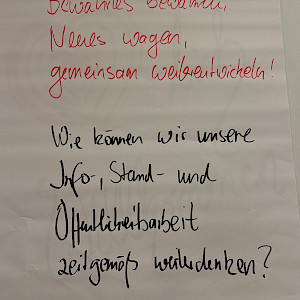 Bewährtes bewahren,
Neues wagen,
gemeinsam weiterentwickeln!
Wie können wir unsere
Info-, Stand- und
Öffentlichkeitsarbeit
zeitgemäß weiterdenken?